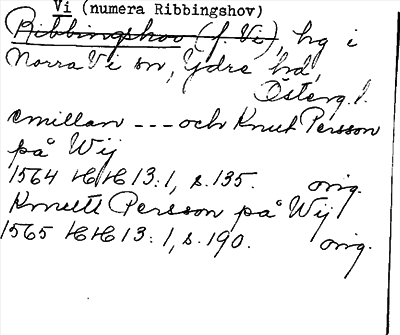 Vi (numera Ribbingshov)
Ribbingshov (f. Vi), hg i
Norra Vi sn, Ydre hd,
Österg. l.
emillan --- och Knut Persson
på Wij
1564 HH 13:1, s. 135. orig.
Knutt Persson på Wij
1565 HH 13:1, s. 190. orig.